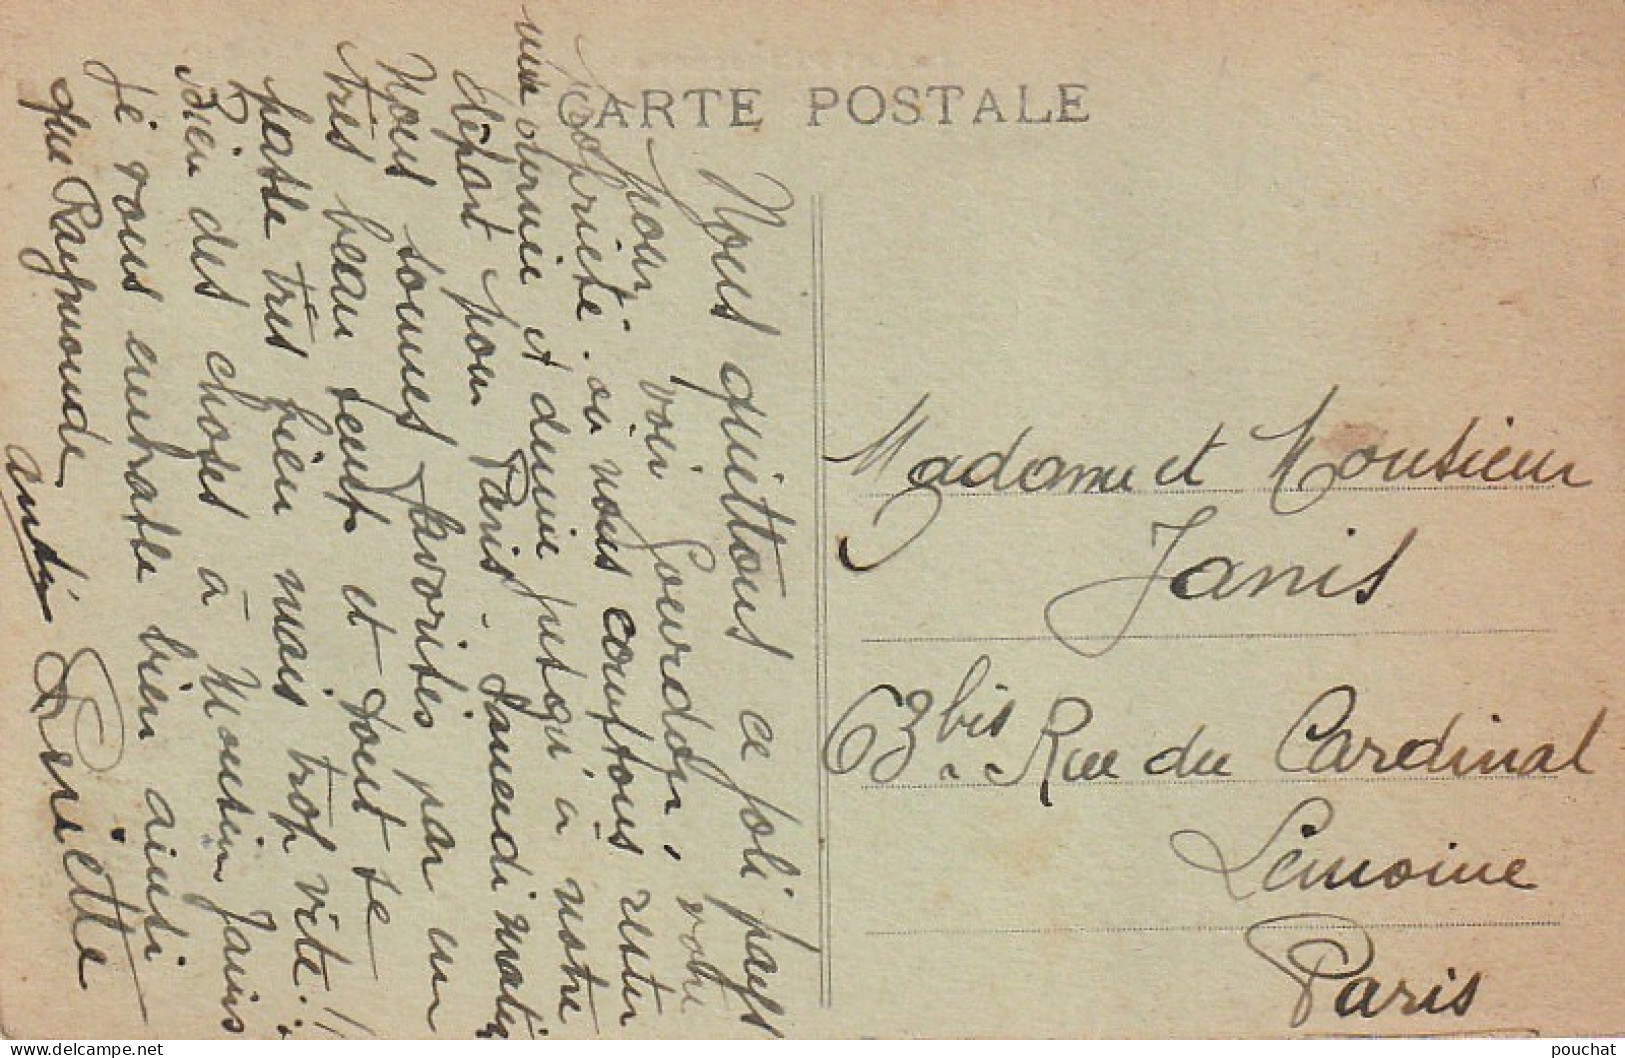 CARTE POSTALE
Nous quittons ce joli pays
pour voir Gourdon, votre
propriété. où nous comptons rester
une demie jusqu'à notre
départ pour Paris. Samedi matin
Nous sommes favorisés par un
très beau temps et tout se
passe très bien mais trop vite !!
Bien des choses à Monsieur Janis
je vous embrasse bien ainsi
que Raymonde
Madame et Monsieur
Janis
63 bis Rue du Cardinal
Lemoine
Paris
pouchat